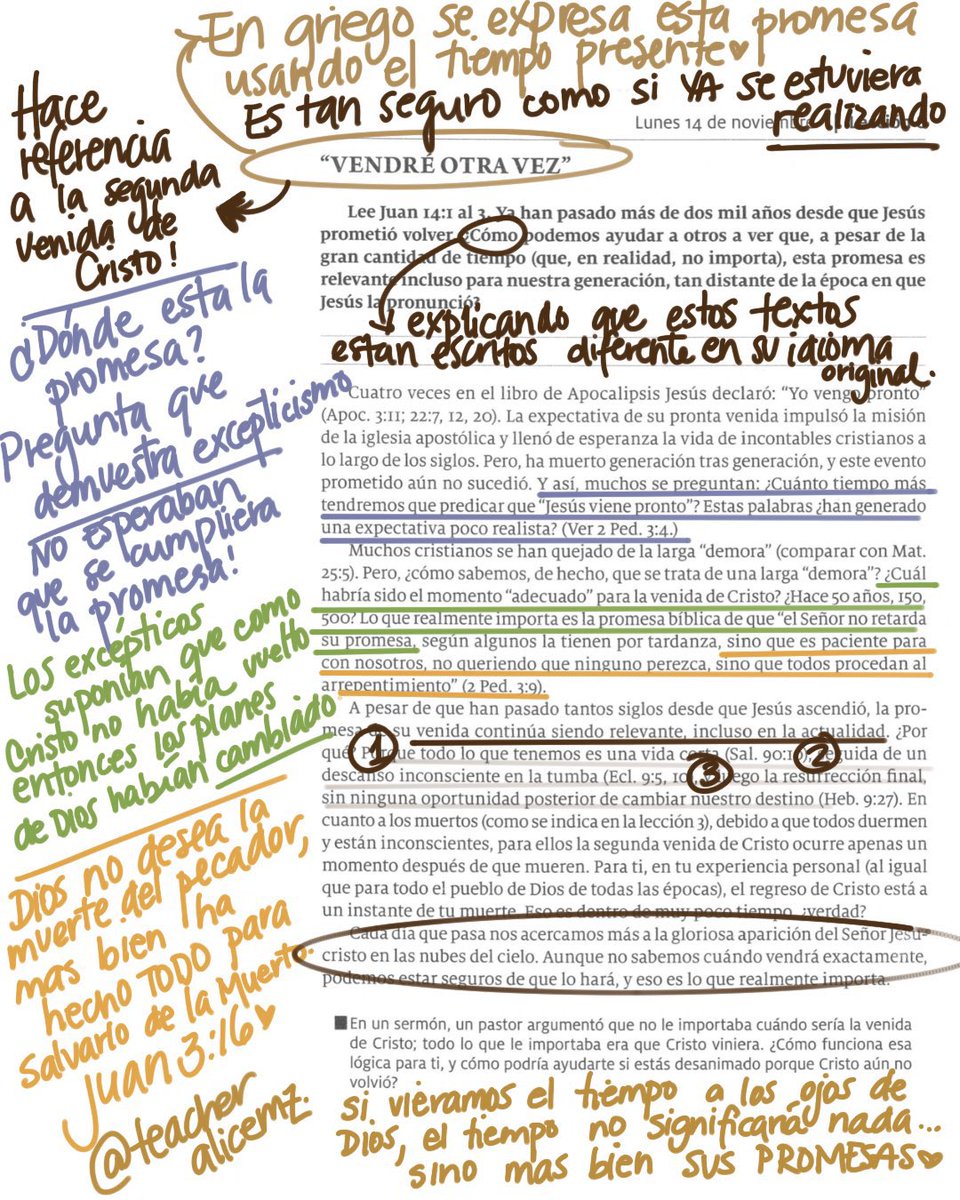 En griego se expresa esta promesa
usando el tiempo presente
Es tan seguro como si YA se estuviera
realizando
Lunes 14 de
Hace
referencia
a la segunda
venida de
Cristo!
"VENDRÉ OTRA VEZ"
Lee Juan 14:1 al 3. Ya han pasado más de dos mil años desde que Jesús
prometió volver. ¿Cómo podemos ayudar a otros a ver que, a pesar de la
gran cantidad de tiempo (que, en realidad, no importa), esta promesa es
relevante incluso para nuestra generación, tan distante de la época en que
Jesús la pronunció?
explicando que estos textos
estan escritos diferente en su idioma
original.
¿Dónde esta la
promesa?
Pregunta que
demuestra excepticismo
No esperaban
que se cumpliera
la promesa!
Cuatro veces en el libro de Apocalipsis Jesús declaró: "Yo vengo pronto"
(Apoc. 3:11; 22:7, 12, 20). La expectativa de su pronta venida impulsó la misión
de la iglesia apostólica y llenó de esperanza la vida de incontables cristianos a
lo largo de los siglos. Pero, ha muerto generación tras generación, y este evento
prometido aún no sucedió. Y así, muchos se preguntan: ¿Cuánto tiempo más
tendremos que predicar que "Jesús viene pronto"? Estas palabras ¿han generado
una expectativa poco realista? (Ver 2 Ped. 3:4.)
Muchos cristianos se han quejado de la larga "demora" (comparar con Mat.
25:5). Pero, ¿cómo sabemos, de hecho, que se trata de una larga "demora"? ¿Cuál
habría sido el momento "adecuado" para la venida de Cristo? ¿Hace 50 años, 150,
500? Lo que realmente importa es la promesa bíblica de que "el Señor no retarda
su promesa, según algunos la tienen por tardanza, sino que es paciente para
con nosotros, no queriendo que ninguno perezca, sino que todos procedan al
arrepentimiento" (2 Ped. 3:9).
Los excépticos
suponían que como
Cristo no había vuelto
entonces los planes
de Dios habían cambiado
A pesar de que han pasado tantos siglos desde que Jesús ascendió, la pro-
mesa de su venida continúa siendo relevante, incluso en la actualidad. ¿Por
qué? Porque todo lo que tenemos es una vida corta (Sal. 90:10), seguida de un
descanso inconsciente en la tumba (Ecl. 9:5, luego la resurrección final,
sin ninguna oportunidad posterior de cambiar nuestro destino (Heb. 9:27). En
cuanto a los muertos (como se indica en la lección 3), debido a que todos duermen
y están inconscientes, para ellos la segunda venida de Cristo ocurre apenas un
momento después de que mueren. Para ti, en tu experiencia personal (al igual
que para todo el pueblo de Dios de todas las épocas), el regreso de Cristo está a
un instante de tu muerte. Eso es dentro de muy poco tiempo, ¿verdad?
1
2
3
Cada día que pasa nos acercamos más a la gloriosa aparición del Señor Jesu-
cristo en las nubes del cielo. Aunque no sabemos cuándo vendrá exactamente,
podemos estar seguros de que lo hará, y eso es lo que realmente importa.
Dios no desea la
muerte del pecador,
mas bien ha
hecho TODO para
salvarlo de la Muerte.
Juan 3:16
@teacher
alicemz.
En un sermón, un pastor argumentó que no le importaba cuándo sería la venida
de Cristo; todo lo que le importaba era que Cristo viniera. ¿Cómo funciona esa
lógica para ti, y cómo podría ayudarte si estás desanimado porque Cristo aún no
volvió?
si vieramos el tiempo a los ojos de
Dios, el tiempo no significará nada...
sino mas bien sus PROMESAS